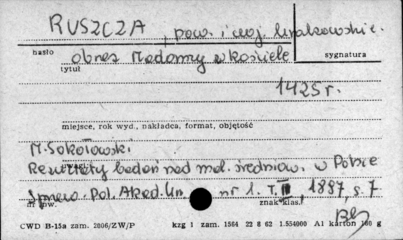 RUSZCZA, pow. i woj. krakowskie.
hasło
obraz Madonny w kościele
sygnatura
tytuł
1425 r.
miejsce, rok wyd., nakładca, format, objętość
M. Sokołowski
Rezultaty badań nad mal. średniow. w Polsce
Spraw. Pol. Akad. Um nr 1. T. III 1887, s. 7
znak klas.
CWD B-15a zam. 2006/ZW/P kzg 1 zam. 1564 22 8 62 1.554000 A1 karton g